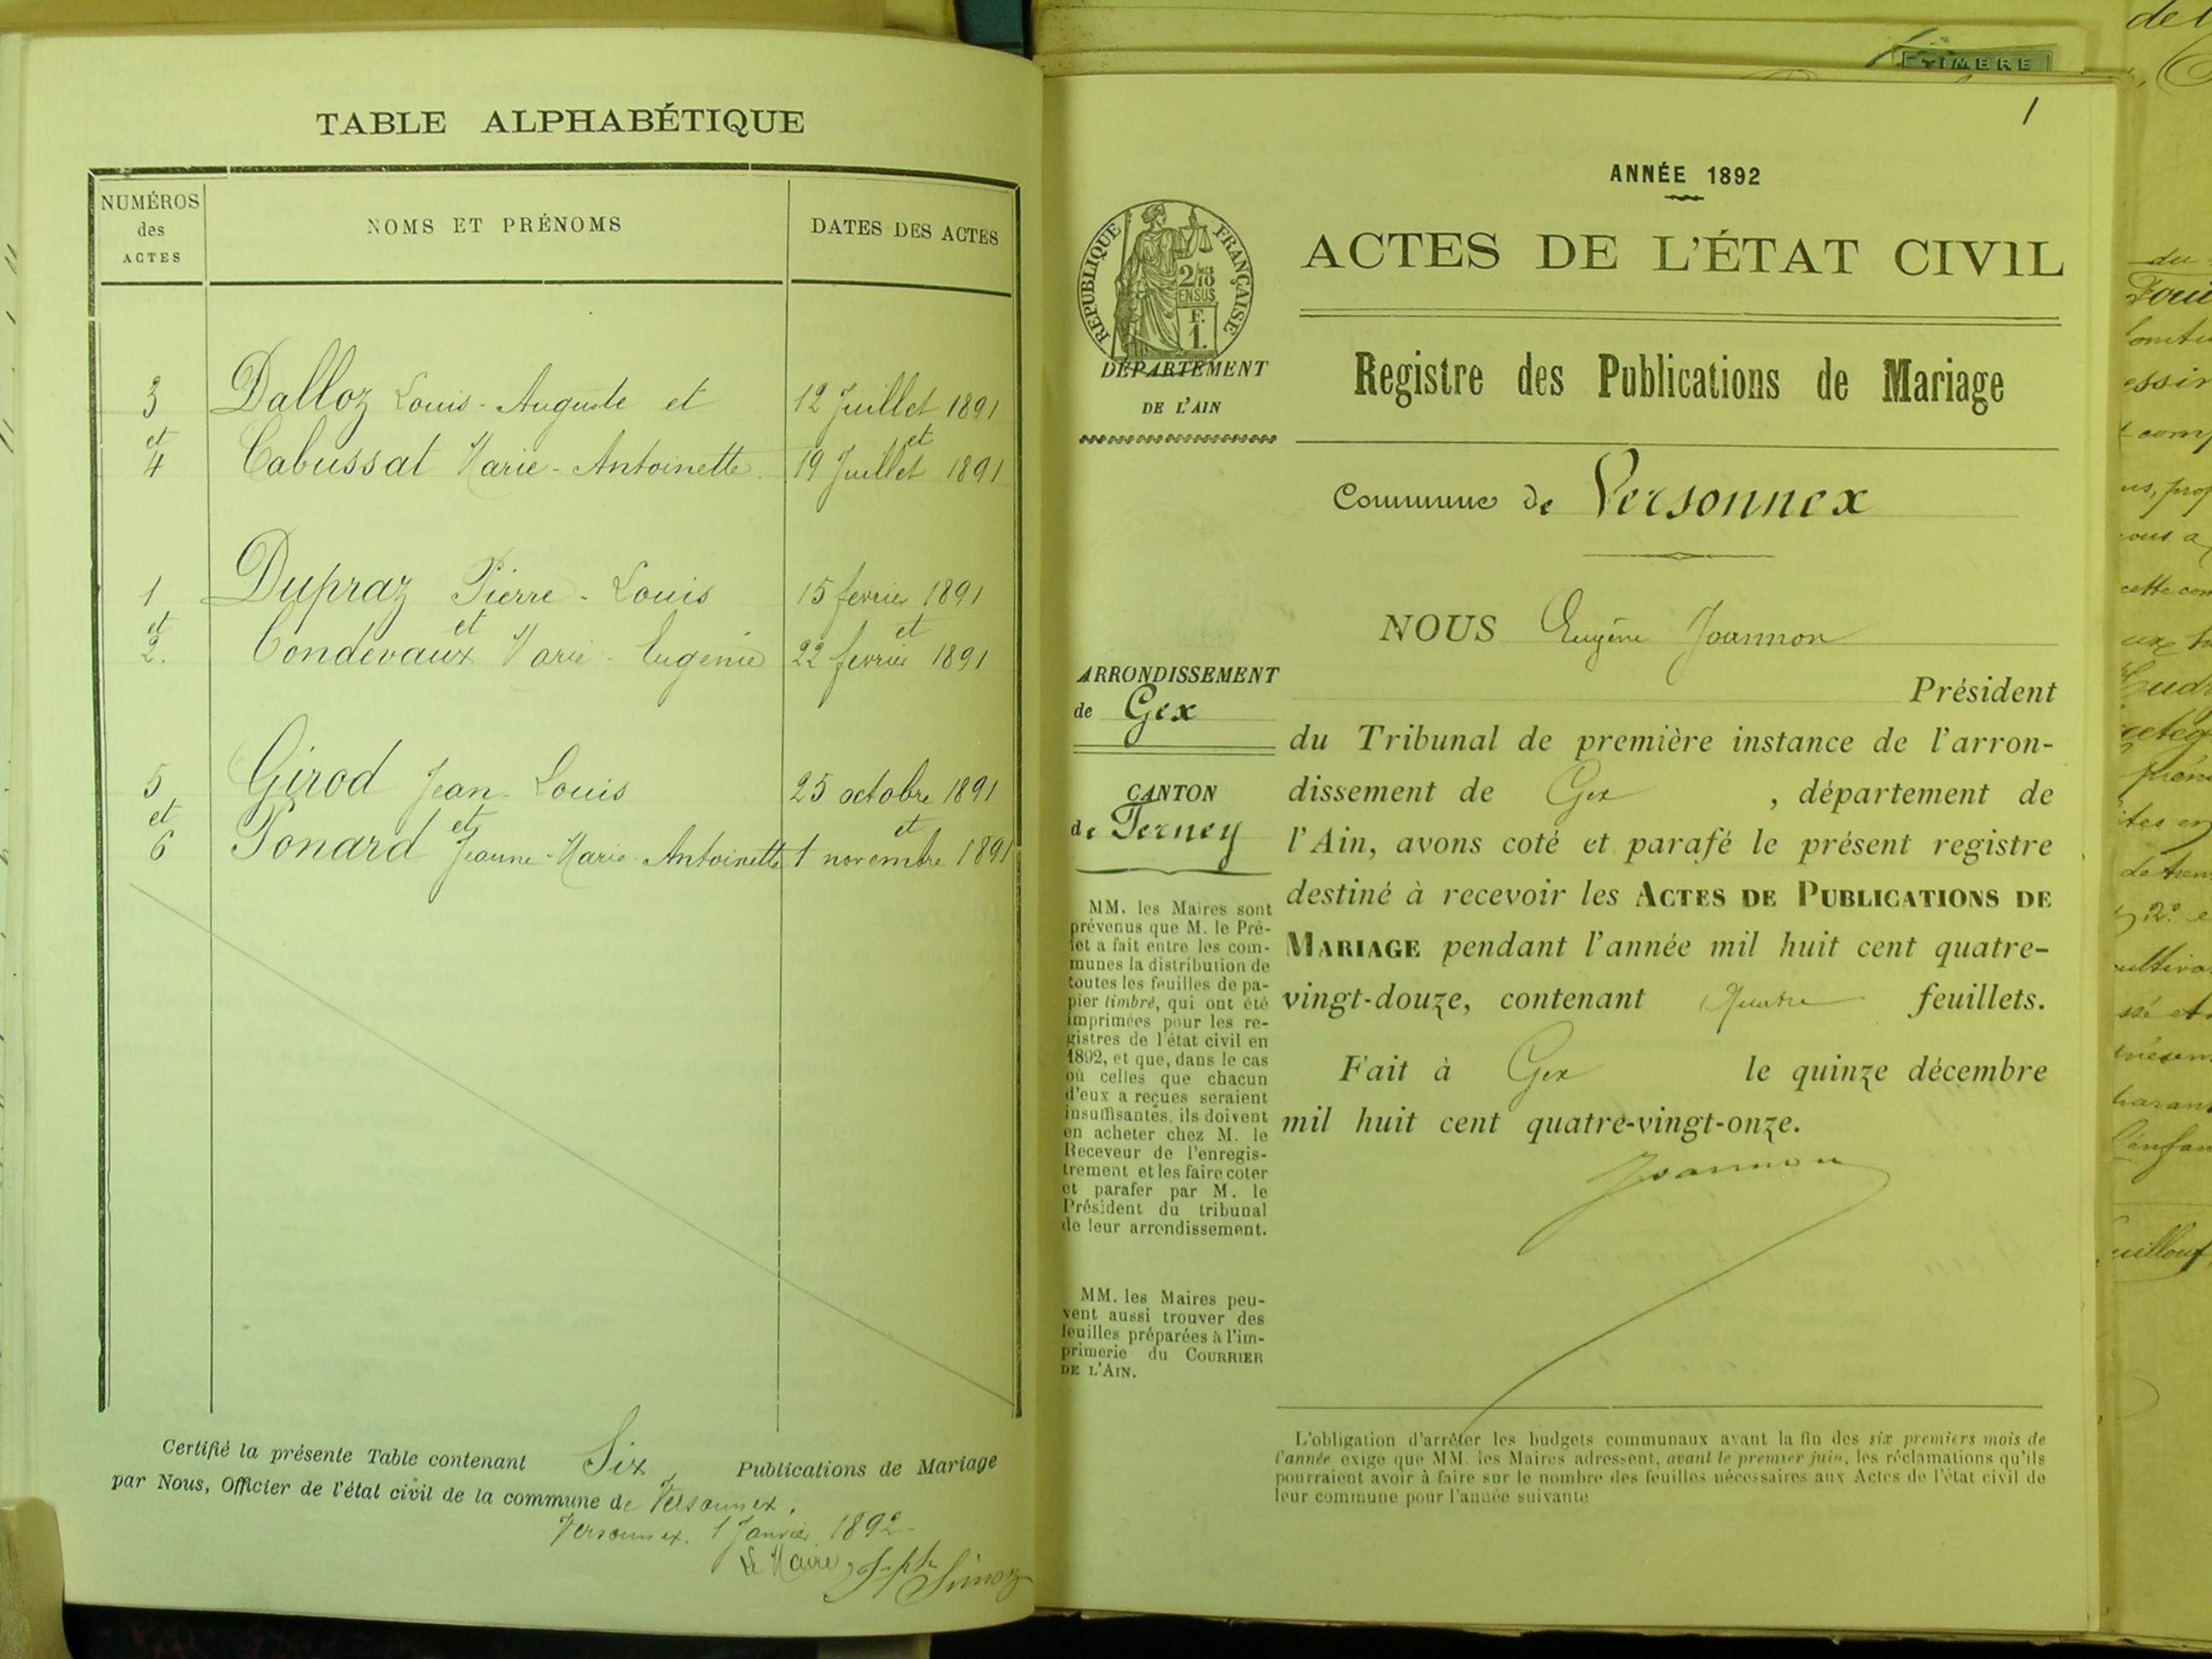 TABLE ALPHABÉTIQUE
NUMÉROS
des
ACTES
NOMS ET PRÉNOMS
DATES DES ACTES
3 Dalloz Louis-Auguste et 12 Juillet 1891
et et
4 Cabussat Marie-Antoinette 19 Juillet 1891
1 Dupraz Pierre-Louis 15 fevrier 1891
et et et
2. Condevaux Marie-Eugénie 22 fevrier 1891
5 Girod Jean-Louis 25 octobre 1891
et et et
6 Ponard Jeanne-Marie-Antoinette 1 novembre 1891
Certifié la présente Table contenant Six Publications de Mariage
par Nous, Officier de l'état civil de la commune de Versonnex.
Versonnex. 1 Janvier 1892
Le Maire,
1
TIMBRE
ANNÉE 1892
RÉPUBLIQUE FRANÇAISE
2/10
EN SUS
F.
1.
DÉPARTEMENT
DE L'AIN
ACTES DE L'ÉTAT CIVIL
Registre des Publications de Mariage
Commune de Versonnex
ARRONDISSEMENT
de Gex
CANTON
de Ferney
MM. les Maires sont
prévenus que M. le Pré-
fet a fait entre les com-
munes la distribution de
toutes les feuilles de pa-
pier timbré, qui ont été
imprimées pour les re-
gistres de l'état civil en
1892, et que, dans le cas
où celles que chacun
d'eux a reçues seraient
insuffisantes, ils doivent
en acheter chez M. le
Receveur de l'enregis-
trement et les faire coter
et parafer par M. le
Président du tribunal
de leur arrondissement.
MM. les Maires peu-
vent aussi trouver des
feuilles préparées à l'im-
primerie du COURRIER
DE L'AIN.
NOUS Eugène Joannon
Président
du Tribunal de première instance de l'arron-
dissement de Gex , département de
l'Ain, avons coté et parafé le présent registre
destiné à recevoir les ACTES DE PUBLICATIONS DE
MARIAGE pendant l'année mil huit cent quatre-
vingt-douze, contenant Quatre feuillets.
Fait à Gex le quinze décembre
mil huit cent quatre-vingt-onze.
Joannon
L'obligation d'arrêter les budgets communaux avant la fin des six premiers mois de
l'année exige que MM. les Maires adressent, avant le premier juin, les réclamations qu'ils
pourraient avoir à faire sur le nombre des feuilles nécessaires aux Actes de l'état civil de
leur commune pour l'année suivante